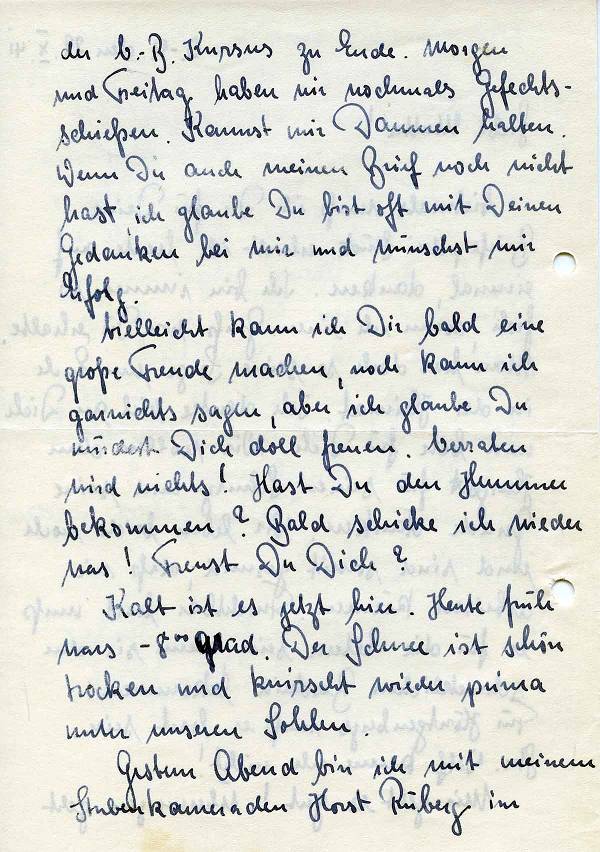 der b.-B. Kursus zu Ende. Morgen
und Freitag haben wir nochmals Gefechts-
schießen. Kannst mir Daumen halten.
Wenn Du auch meinen Brief noch nicht
hast, ich glaube Du bist oft mit Deinen
Gedanken bei mir und wünschst mir
Erfolg.
Vielleicht kann ich Dir bald eine
große Freude machen, noch kann ich
garnichts sagen, aber ich glaube Du
würdest Dich doll freuen. Verraten
wird nichts! Hast Du den Hummer
bekommen? Bald schicke ich wieder
was! Freust Du Dich?
Kalt ist es jetzt hier. Heute früh
wars -8°° grad. Der Schnee ist schön
trocken und knirscht wieder prima
unter unseren Sohlen.
Gestern Abend bin ich mit meinem
Stubenkameraden Horst Rüberg im